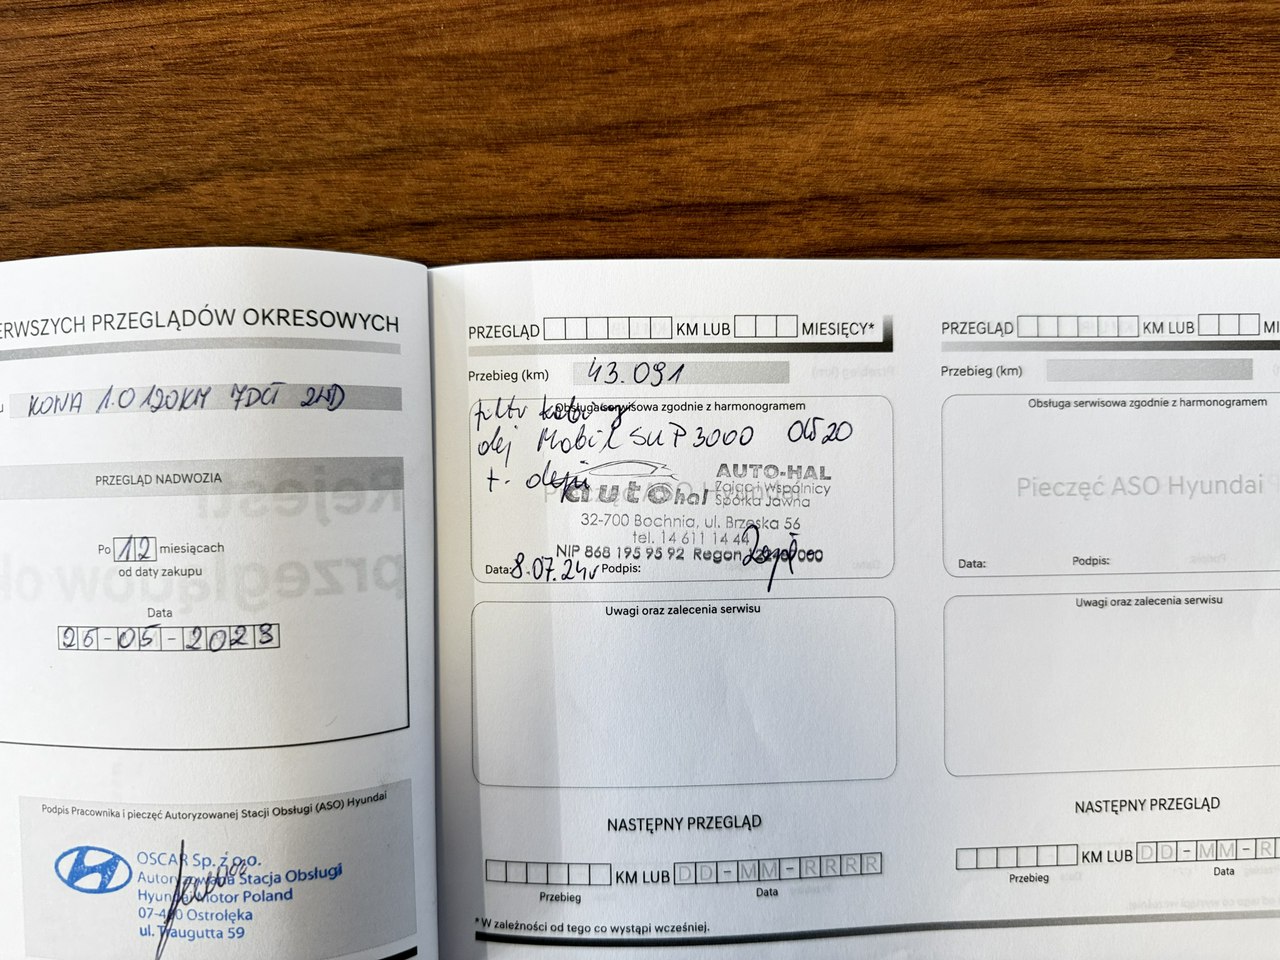 ERWSZYCH PRZEGLĄDÓW OKRESOWYCH
u KONA 1.0 120KM 7DCT 2WD
PRZEGLĄD NADWOZIA
Po 12 miesiącach
od daty zakupu
Data
26-05-2023
Podpis Pracownika i pieczęć Autoryzowanej Stacji Obsługi (ASO) Hyundai
OSCAR Sp. z o.o.
Autoryzowana Stacja Obsługi
Hyundai Motor Poland
07-400 Ostrołęka
ul. Traugutta 59
PRZEGLĄD KM LUB MIESIĘCY*
Przebieg (km) 43.091
Obsługa serwisowa zgodnie z harmonogramem
filtr
olej Mobil SUP 3000 0W20
+
Pieczęć ASO Hyundai
autohal
AUTO-HAL
Zając i Wspólnicy
Spółka Jawna
32-700 Bochnia, ul. Brzeska 56
tel. 14 611 14 44
NIP 868 195 95 92 Regon
Data: 8.07.24r Podpis:
Uwagi oraz zalecenia serwisu
NASTĘPNY PRZEGLĄD
KM LUB DD-MM-RRRR
Przebieg Data
*W zależności od tego co wystąpi wcześniej.
PRZEGLĄD KM LUB MI
Przebieg (km)
Obsługa serwisowa zgodnie z harmonogramem
Pieczęć ASO Hyundai
Data: Podpis:
Uwagi oraz zalecenia serwisu
NASTĘPNY PRZEGLĄD
KM LUB DD-MM-R
Przebieg Data